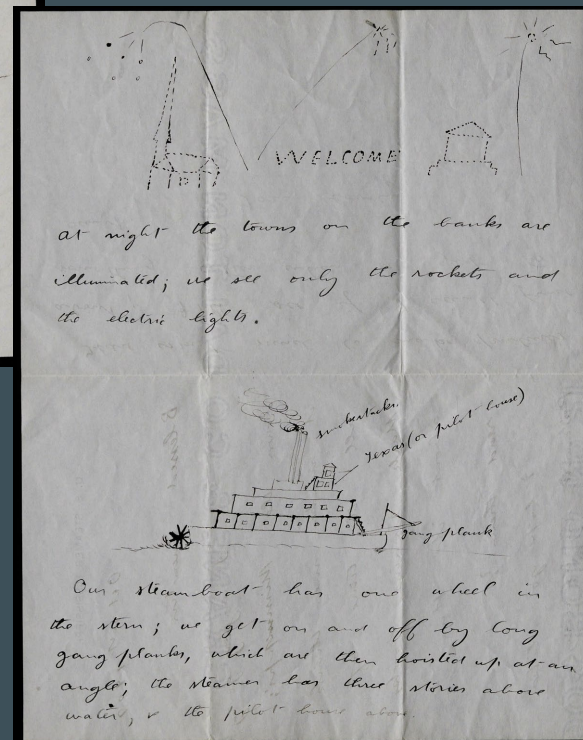 WELCOME
at night the towns on the banks are
illuminated; we see only the rockets and
the electric lights.
smokestacks.
Texas (or pilot house)
gang plank
Our steamboat has one wheel in
the stern; we get on and off by long
gang planks, which are then hoisted up at an
angle; the steamer has three stories above
water, & the pilot house above.